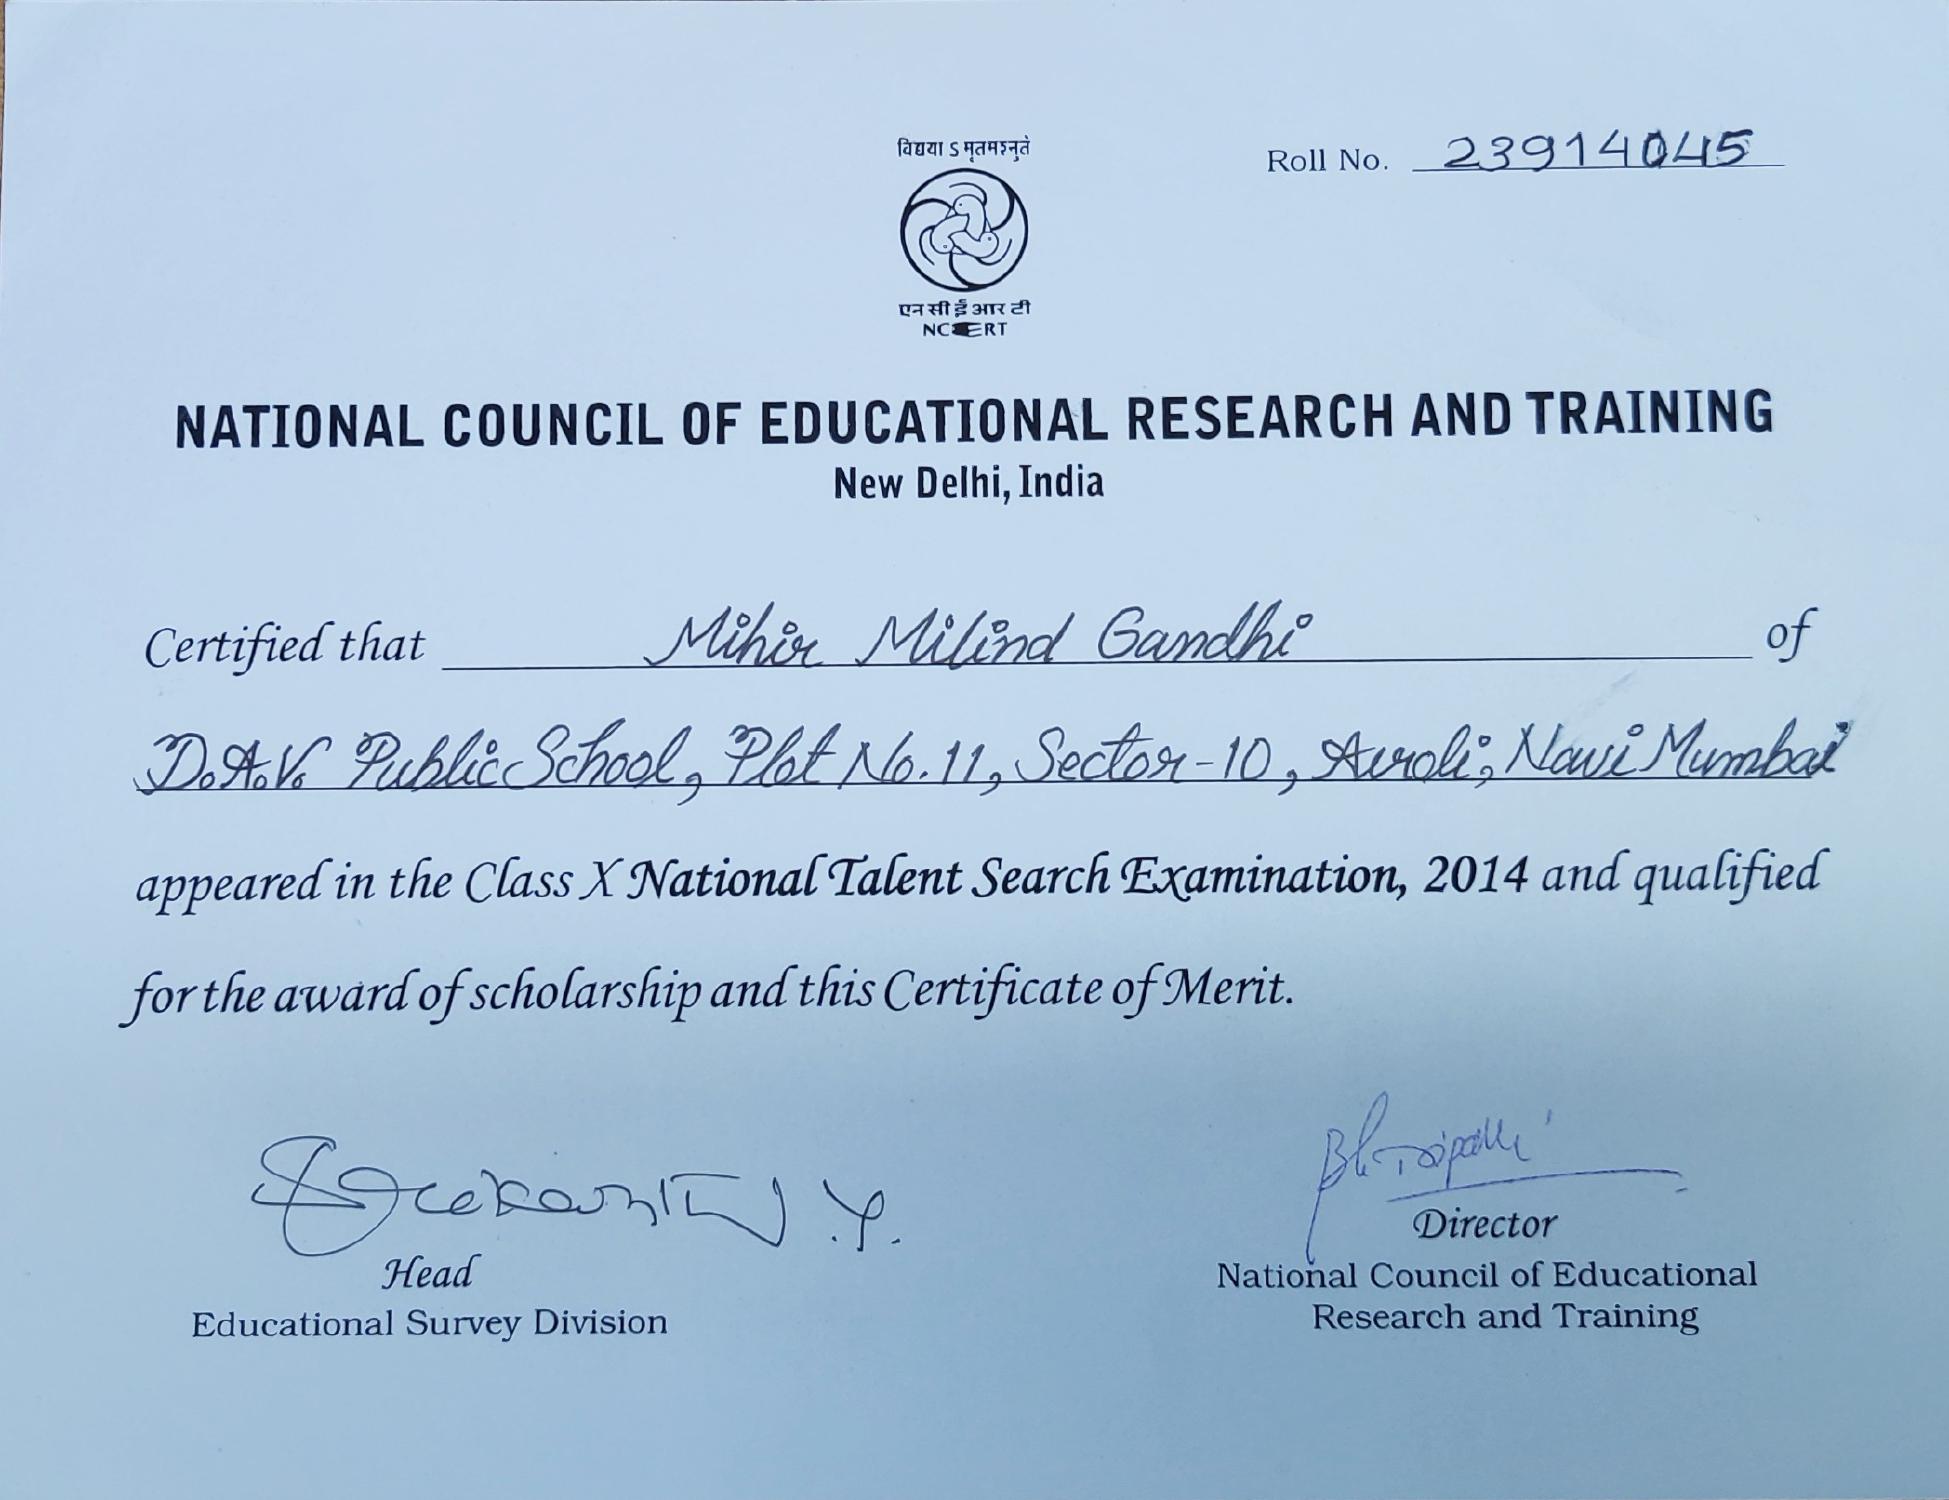 विद्यया ऽ मृतमश्नुते
Roll No. 23914045
एन सी ई आर टी
NCERT
NATIONAL COUNCIL OF EDUCATIONAL RESEARCH AND TRAINING
New Delhi, India
Certified that Mihir Milind Gandhi of
D.A.V. Public School, Plot No. 11, Sector-10, Airoli, Navi Mumbai
appeared in the Class X National Talent Search Examination, 2014 and qualified
for the award of scholarship and this Certificate of Merit.
Sreekanth Y.
Head
Educational Survey Division
Director
National Council of Educational
Research and Training